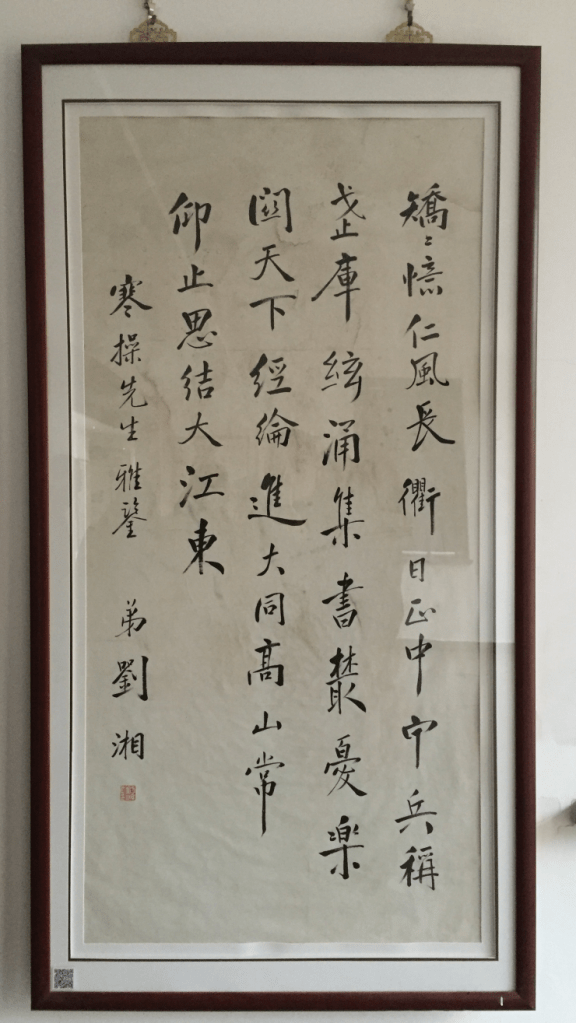 矯〻憶仁風長衢日正中甲兵稱
武庫絃涌集書叢憂樂
關天下經綸進大同高山常
仰止思結大江東
寒操先生雅鑒 弟劉湘